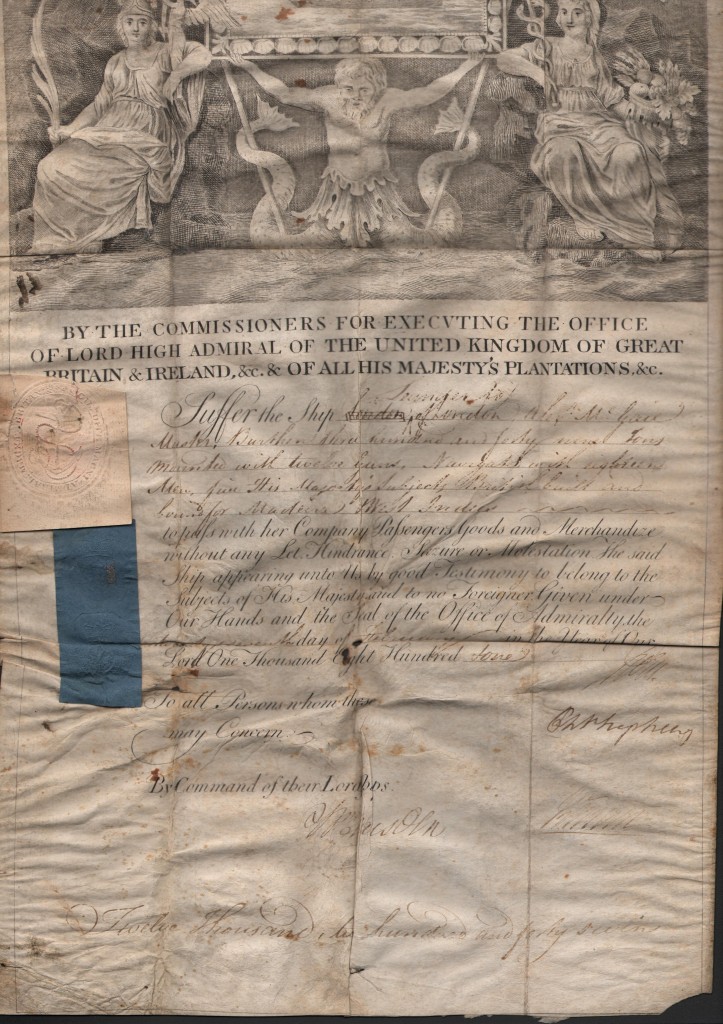 BY THE COMMISSIONERS FOR EXECVTING THE OFFICE
OF LORD HIGH ADMIRAL OF THE UNITED KINGDOM OF GREAT
BRITAIN & IRELAND, &c. & OF ALL HIS MAJESTY'S PLANTATIONS, &c.
Suffer the Ship London of London
Master Burthen three hundred and forty nine Tons
Mounted with twelve Guns, Navigated with eighteen
Men, five His Majesty's Subjects British built and
bound for Madeira & West Indies
to pass with her Company Passengers Goods and Merchandize
without any Let Hindrance, Seizure or Molestation the said
Ship appearing unto Us by good Testimony to belong to the
Subjects of His Majesty and to no Foreigner Given under
Our Hands and the Seal of the Office of Admiralty, the
day of in the Year of Our
Lord One Thousand Eight Hundred
To all Persons whom these
may Concern
By Command of their Lordps
Twelve Thousand hundred and forty seven